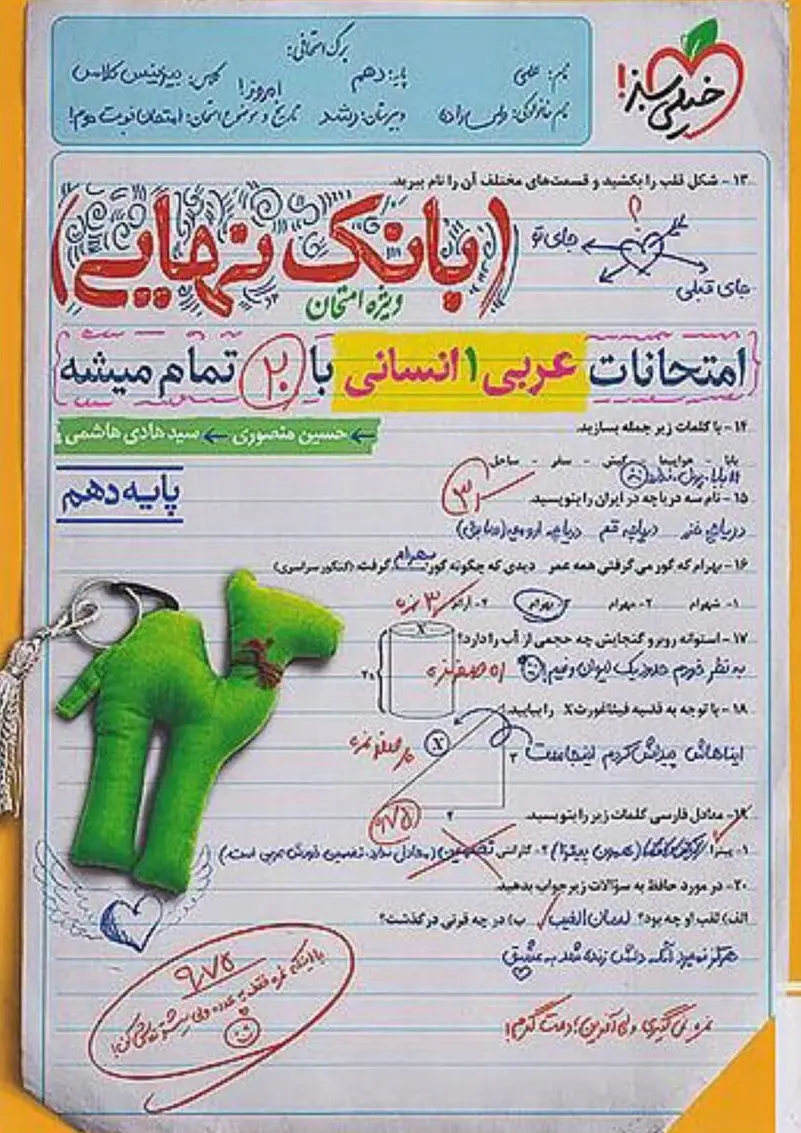 خیلی سبز!
برگ امتحانی:
نام: علی
پایه: دهم
کلاس: بیزینس کلاس
نام خانوادگی:
دبیرستان: رشد
تاریخ و موضوع امتحان: امروز! امتحان نوبت دوم!
۱۳- شکل قلب را بکشید و قسمت‌های مختلف آن را نام ببرید.
؟
جای تو
جای قبلی
(بانک نهایی)
ویژه امتحان
امتحانات عربی ۱ انسانی با ۲۰ تمام میشه
۱۴- با کلمات زیر جمله بسازید.
حسین منصوری ← سید هادی هاشمی
بابا - هواپیما - کیش - سفر - ساحل
پایه دهم
۱۵- نام سه دریاچه در ایران را بنویسید.
دریاچه خزر دریاچه قم دریاچه ارومیه (سابق)
۱۶- بهرام که گور می گرفتی همه عمر دیدی که چگونه گور بهرام گرفت؟ (کنکور سراسری)
۱- شهرام ۲- مهرام ۳- بهرام ۴- آرام
۱۷- استوانه روبرو گنجایش چه حجمی از آب را دارد؟
X
۲۰
به نظر خودم حدود یک لیوان و نیم!
۱۸- با توجه به قضیه فیثاغورث X را بیابید.
ایناهاش پیداش کردم اینجاست
X
۳
۴
۹/۷۵
۱۹- معادل فارسی کلمات زیر را بنویسید.
۱- پیتزا
۲- گارانتی تضمین (معادل ندارد، تضمین خودش عربی است.)
۲۰- در مورد حافظ به سؤالات زیر جواب بدهید.
الف) لقب او چه بود؟ لسان الغیب ب) در چه قرنی درگذشت؟
هرگز نمیرد آنکه دلش زنده شد به عشق
۹/۷۵
نمره نمی‌گیری ولی آفرین! دمت گرم!